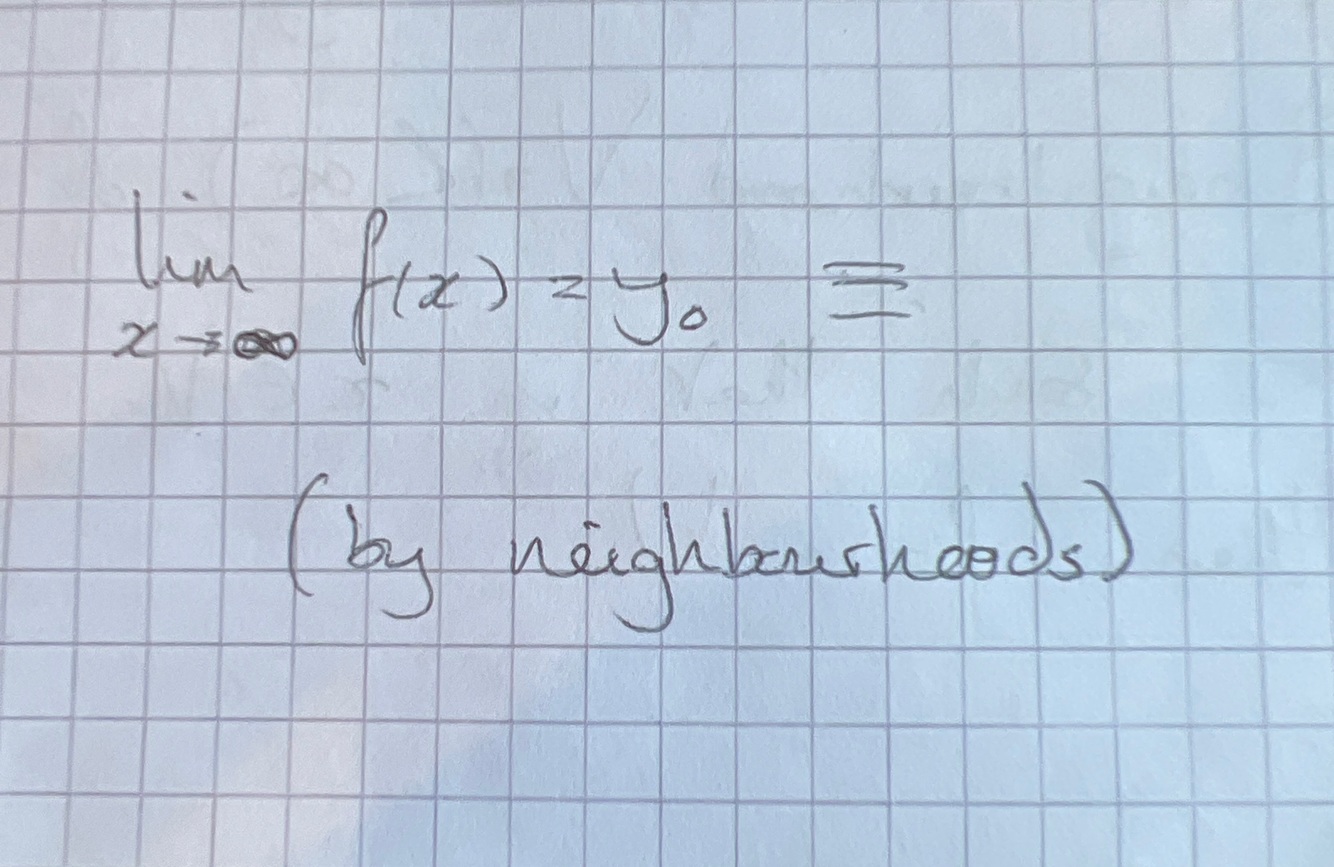 lim f(x) = y₀ ≡
x→∞
(by neighbourhoods)